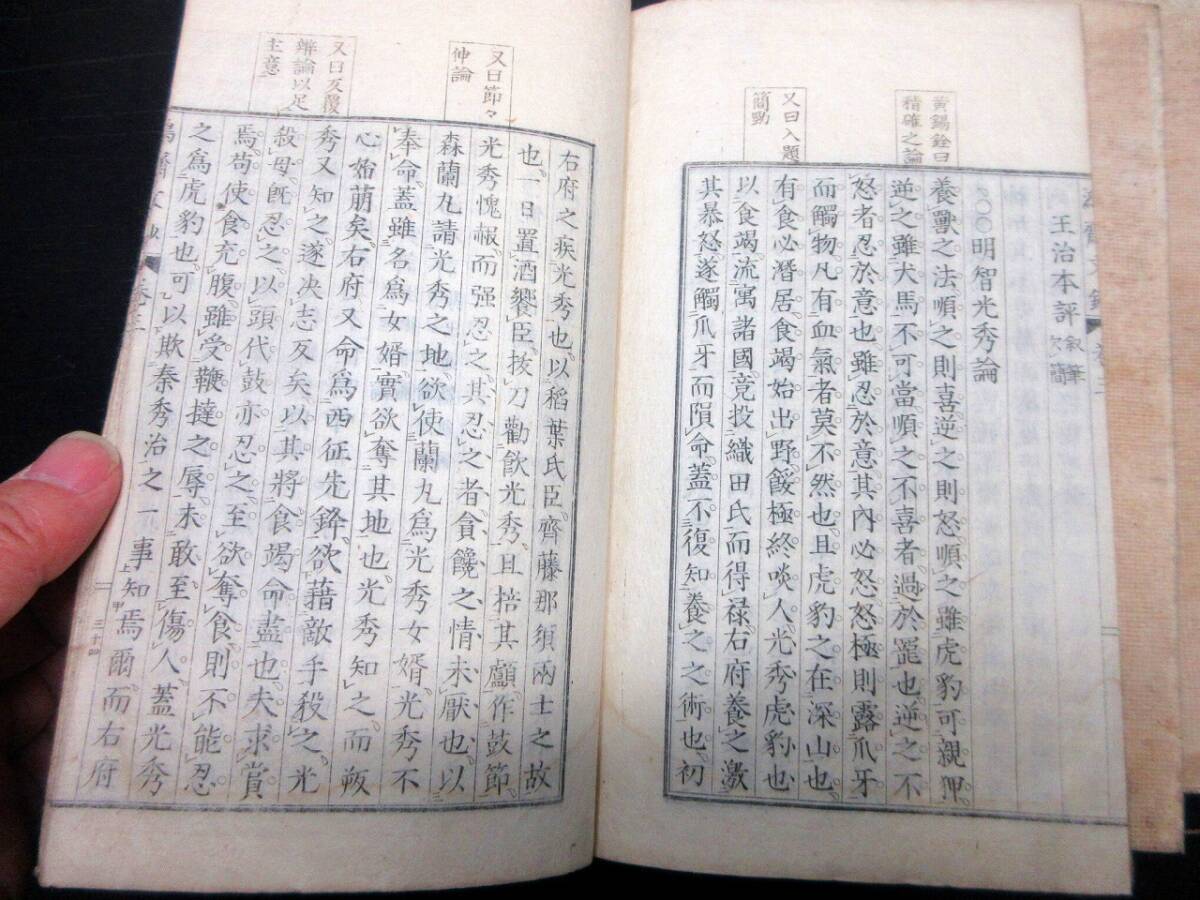 王治本評 叙筆次簡
明智光秀論
養獸之法順之則喜逆之則怒順之雖虎豹可親狎
逆之雖犬馬不可當順之不喜者過於罷也逆之不
怒者忍於意也雖忍於意其內必怒怒極則露爪牙
而觸物凡有血氣者莫不然也且虎豹之在深山也
有食必潛居食竭始出野餒極終啖人光秀虎豹也
以食竭流寓諸國竟投織田氏而得祿右府養之激
其暴怒遂觸爪牙而隕命蓋不復知養之之術也初
黃錫銓曰
精確之論
又曰入題
簡勁
右府之疾光秀也以稻葉氏臣齊藤那須兩士之故
也一日置酒饗臣拔刀勸飲光秀且掊其顱作鼓節
光秀愧赧而强忍之其忍之者貪饞之情未厭也以
森蘭丸請光秀之地欲使蘭丸爲光秀女婿光秀不
奉命蓋雖名爲女婿實欲奪其地也光秀知之而叛
心始萠矣右府又命爲西征先鋒欲藉敵手殺之光
秀又知之遂決志反矣以其將食竭命盡也夫求賞
殺母既忍之以頭代鼓亦忍之至欲奪食則不能忍
焉苟使食充腹雖受鞭撻之辱未敢至傷人蓋光秀
之爲虎豹也可以欺秦秀治之一事知焉爾而右府
又曰節々
伸論
又曰反覆
辨論以足
主意
卷三
三十四